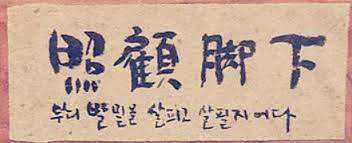 照顧脚下
부디 발밑을 살피고 살필지어다